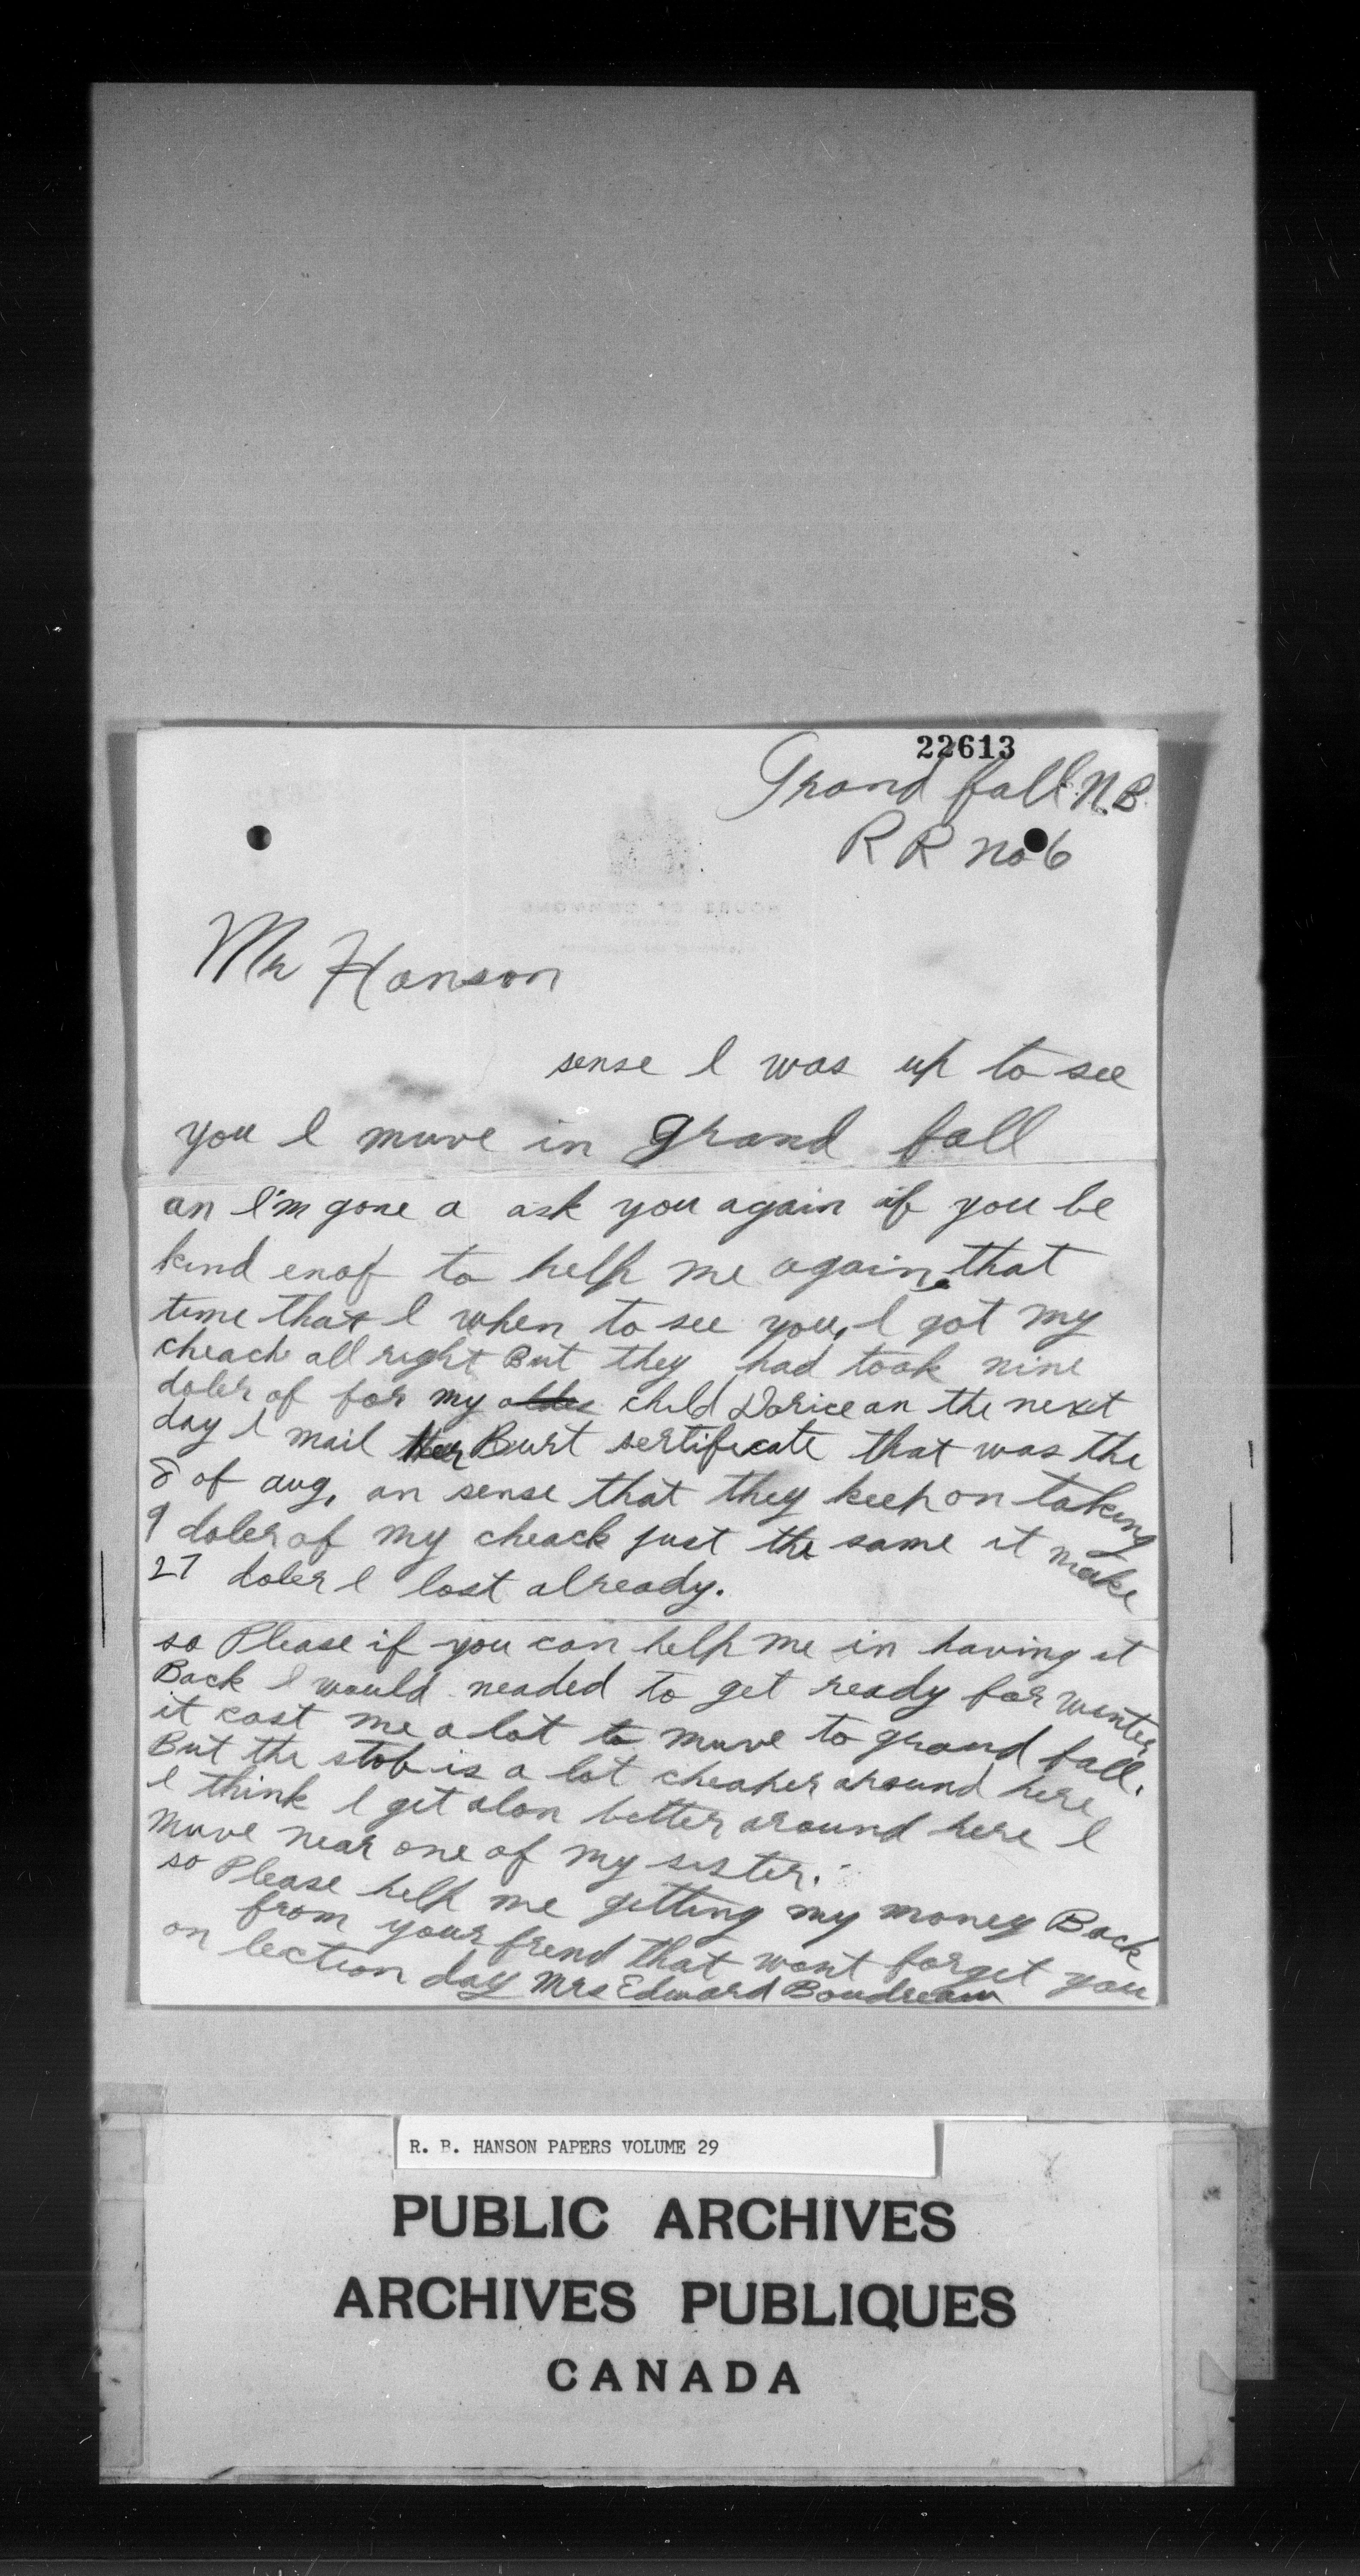 22613
Grand fall N.B.
R R no 6
Mr Hanson
sense I was up to see
you I muve in grand fall
an I'm gone a ask you again if you be
kind enof to help me again, that
time that I when to see you, I got my
cheack all right But they had took nine
doler of for my child Dorice an the next
day I mail Her Burt sertificate that was the
8 of aug, an sense that they keep on taking
9 doler of my cheack just the same it make
27 doler I lost already.
so Please if you can help me in having it
Back I would neaded to get ready for winter
it cost me a lot to muve to grand fall.
But the stof is a lot cheaper around here
I think I get alon better around here I
muve near one of my sister.
so Please help me getting my money Back
from your frend that wont forget you
on lection day Mrs Edward Boudreau
R. B. HANSON PAPERS VOLUME 29
PUBLIC ARCHIVES
ARCHIVES PUBLIQUES
CANADA